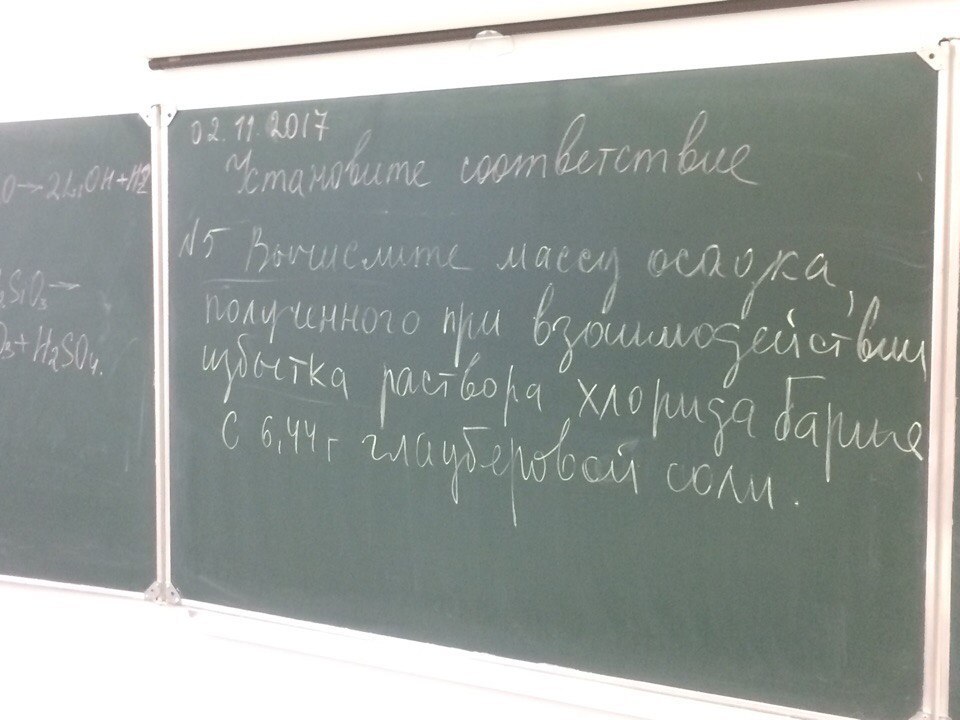 O → 2LiOH + H2
2SiO3 →
O3 + H2SO4.
02.11.2017
Установите соответствие
N5 Вычислите массу осадка,
полученного при взаимодействии
избытка раствора хлорида бария
с 6,44 г глауберовой соли.